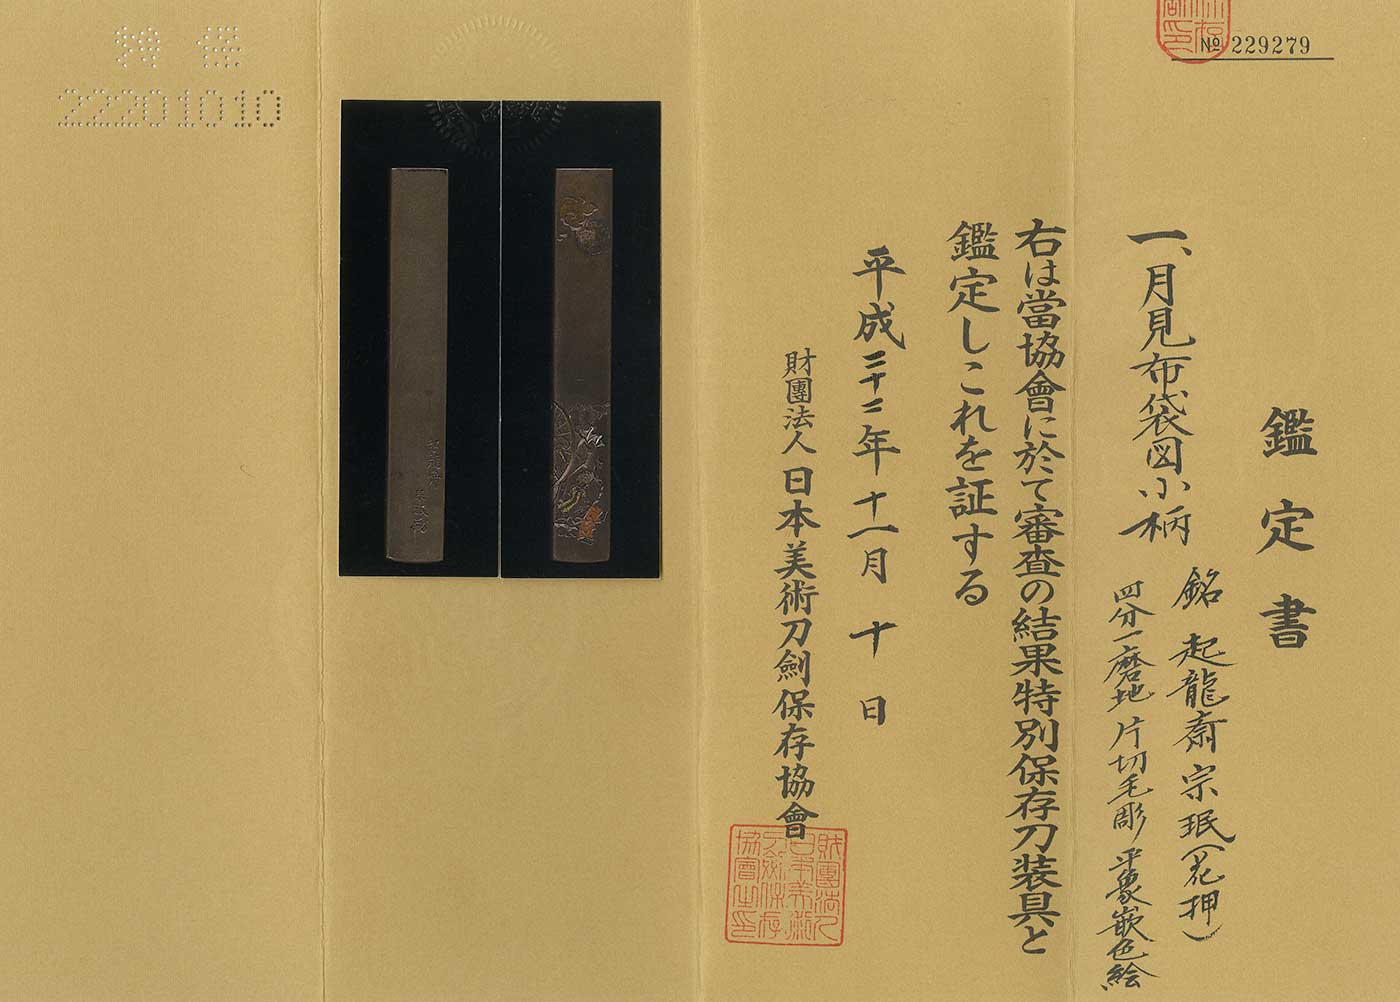 No 229279
鑑定書
一、月見布袋図小柄
銘 起龍斎宗珉（花押）
四分一磨地 片切毛彫 平象嵌色絵
右は當協會に於て審査の結果特別保存刀装具と
鑑定しこれを証する
平成二十二年十一月十日
財團法人 日本美術刀劍保存協會
財團法人
日本美術
刀劍保存
協會之印
特保
22201010